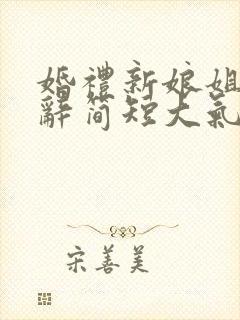 婚禮新娘姐
辭簡短大氣
宋善美